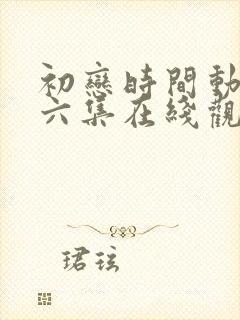 初戀時間動
六集在綫觀
珺玹